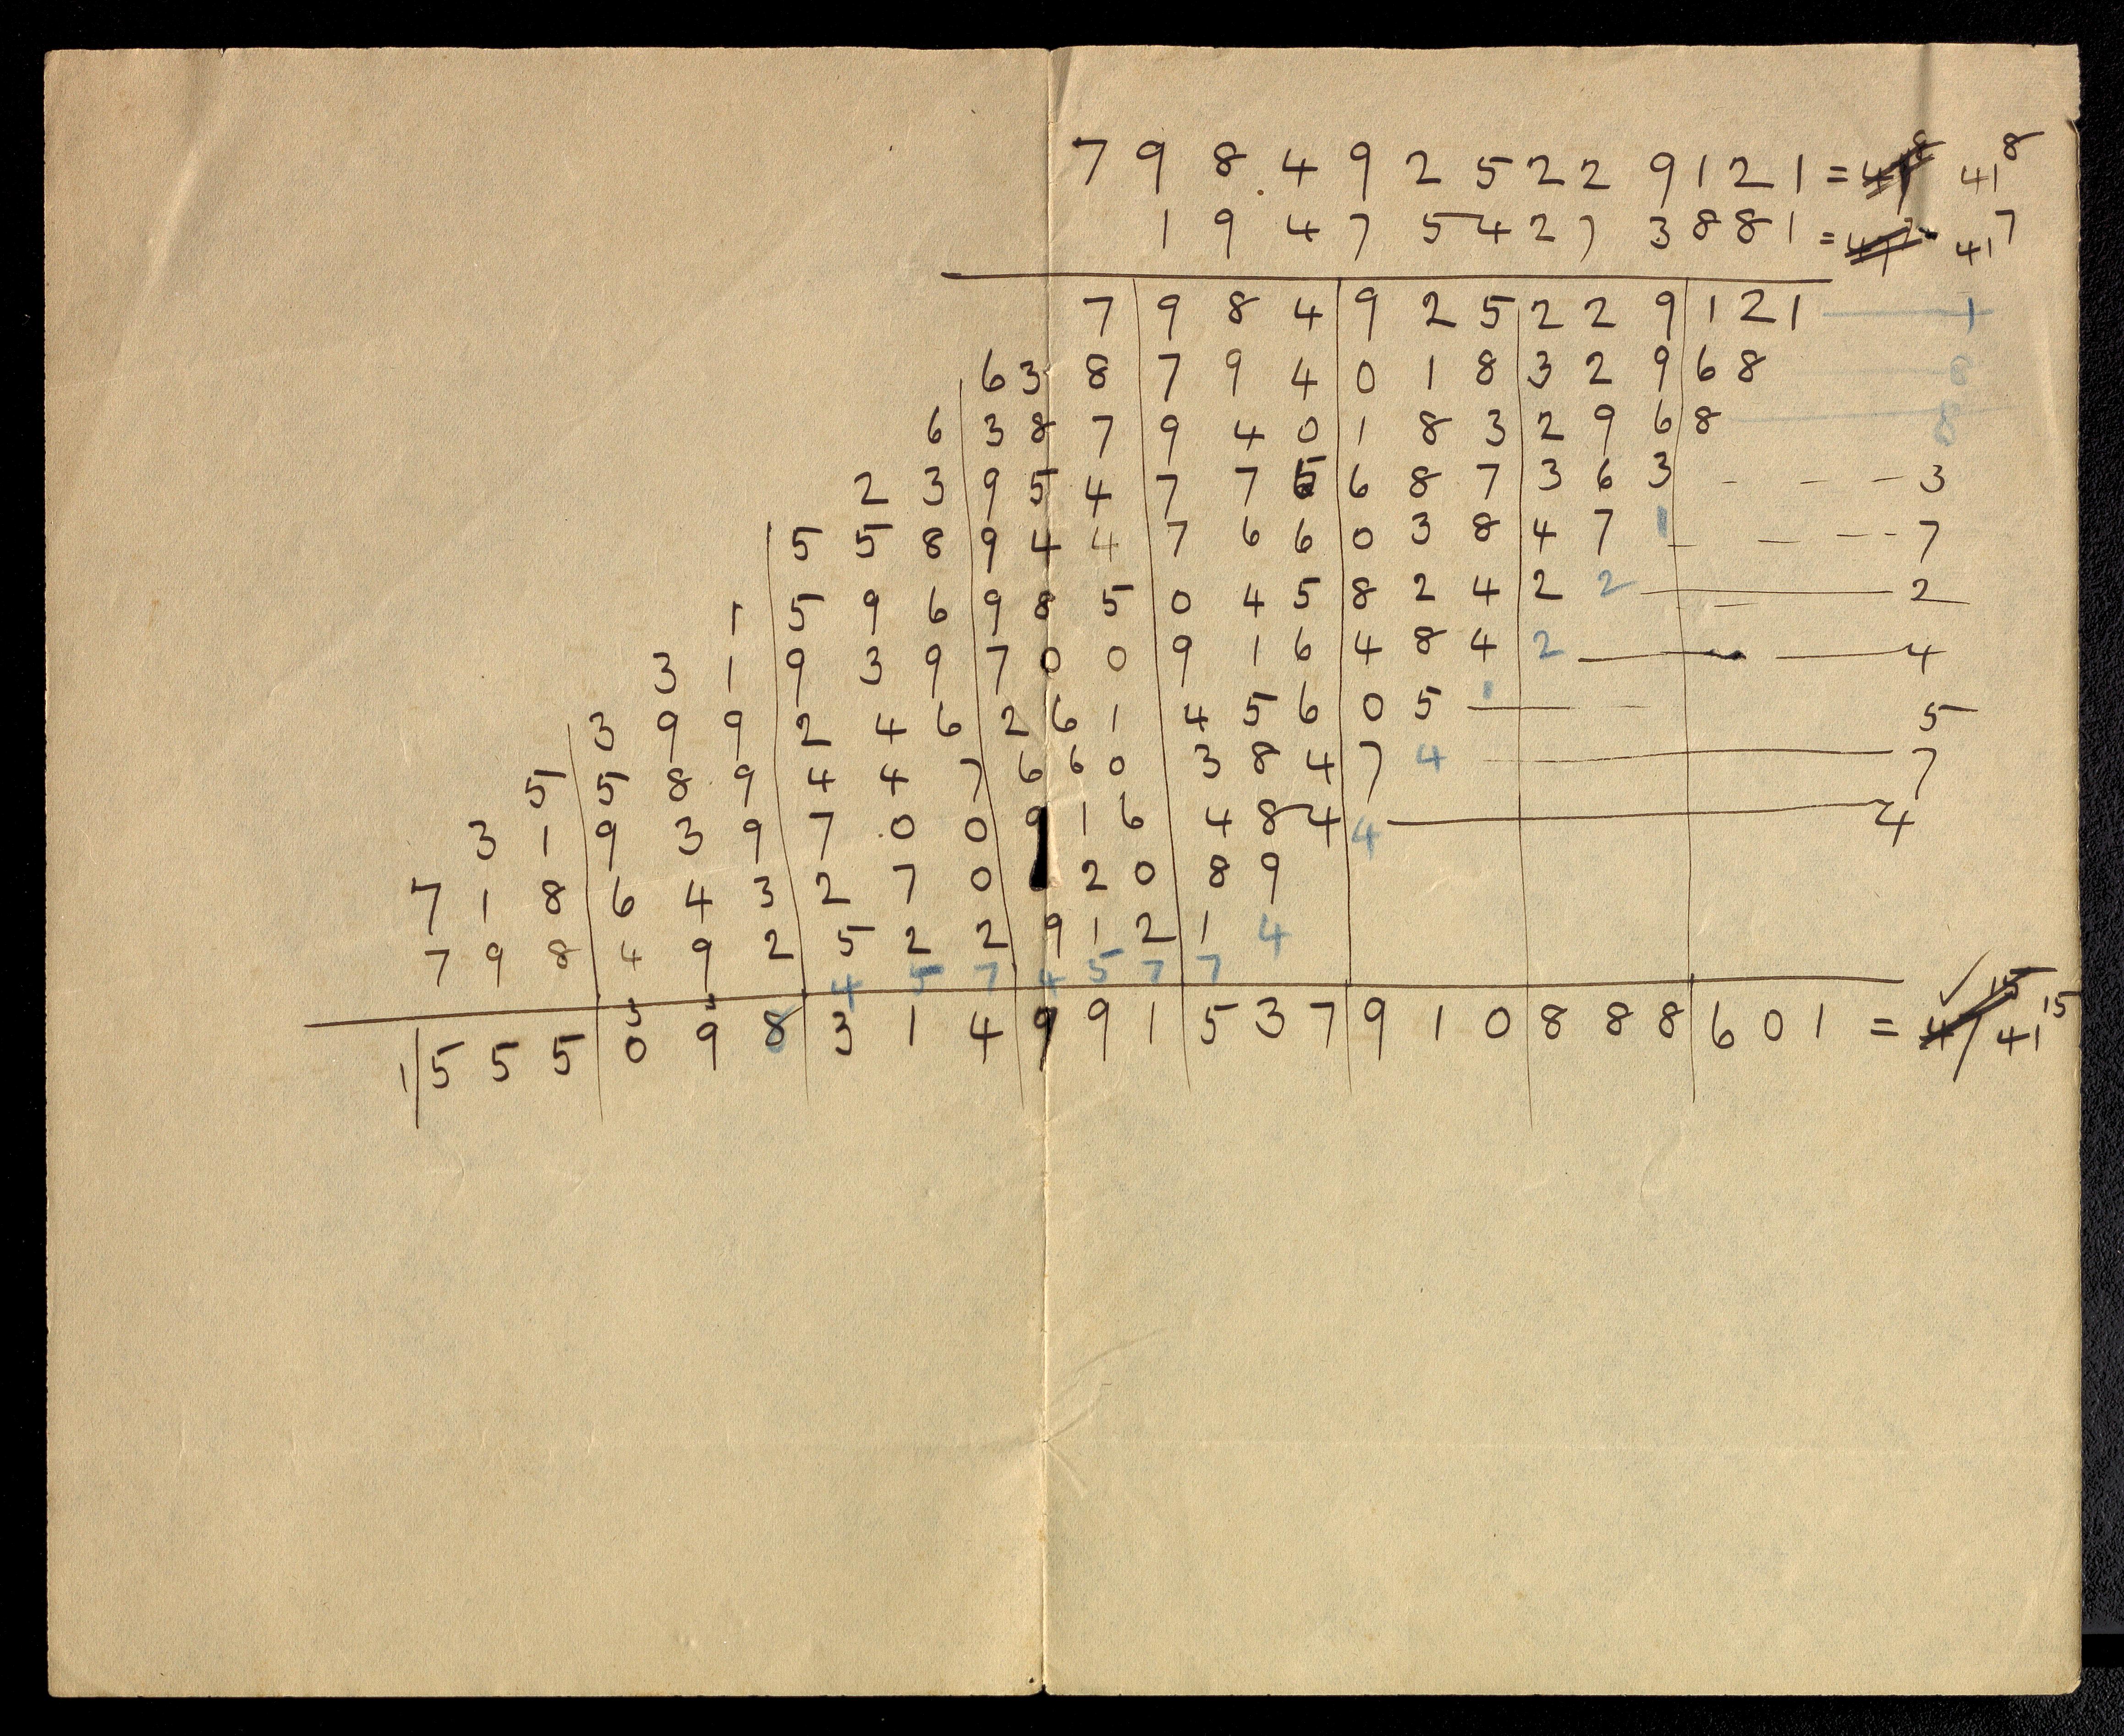 7 9 8 4 9 2 5 2 2 9 1 2 1 = 41⁸ 41⁸
1 9 4 7 5 4 2 7 3 8 8 1 = 41⁷ 41⁷
7 9 8 4 9 2 5 2 2 9 1 2 1 — 1
6 3 8 7 9 4 0 1 8 3 2 9 6 8 — 8
6 3 8 7 9 4 0 1 8 3 2 9 6 8 — 8
2 3 9 5 4 7 7 5 6 8 7 3 6 3 - - - 3
5 5 8 9 4 4 7 6 6 0 3 8 4 7 1 - - - 7
1 5 9 6 9 8 5 0 4 5 8 2 4 2 2 — 2
3 1 9 3 9 7 0 0 9 1 6 4 8 4 2 — 4
3 9 9 2 4 6 2 6 1 4 5 6 0 5 1 — 5
5 5 8 9 4 4 7 6 6 0 3 8 4 7 4 — 7
3 1 9 3 9 7 0 0 9 1 6 4 8 4 4 — 4
7 1 8 6 4 3 2 7 0 2 0 8 9
7 9 8 4 9 2 5 2 2 9 1 2 1 4
4 5 7 4 5 7 7
1 5 5 5 0 9 8 3 1 4 9 9 1 5 3 7 9 1 0 8 8 8 6 0 1 = 41¹⁵ 41¹⁵